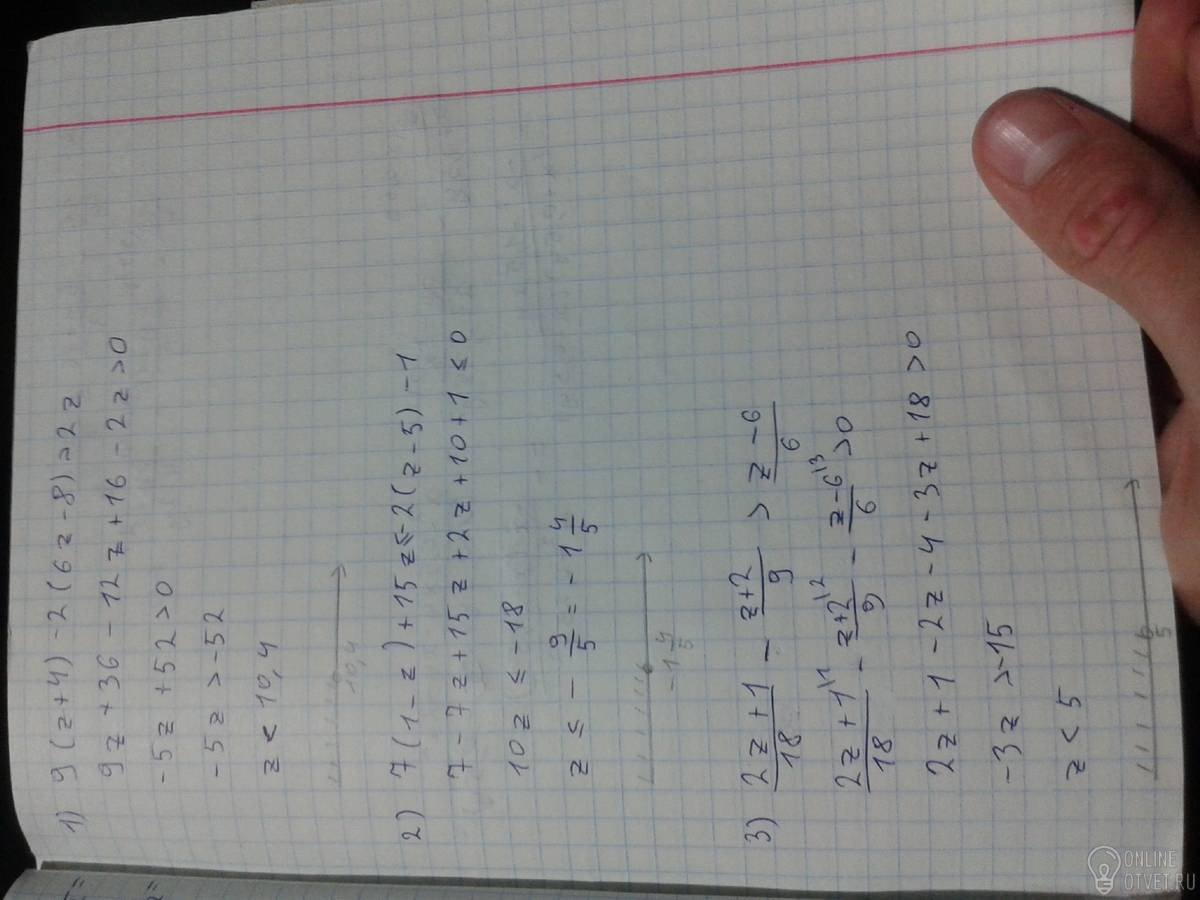 1) 9(z+4)-2(6z-8)>2z
9z+36-12z+16-2z>0
-5z+52>0
-5z>-52
z<10,4
10,4
2) 7(1-z)+15z≤-2(z-5)-1
7-7z+15z+2z+10+1≤0
10z≤-18
z≤-9/5=-1 4/5
-1 4/5
3) (2z+1)/18-(z+2)/9>(z-6)/6
(2z+1)/18 \1-(z+2)/9 \2-(z-6)/6 \3>0
2z+1-2z-4-3z+18>0
-3z>-15
z<5
5
ONLINE
OTVET.RU